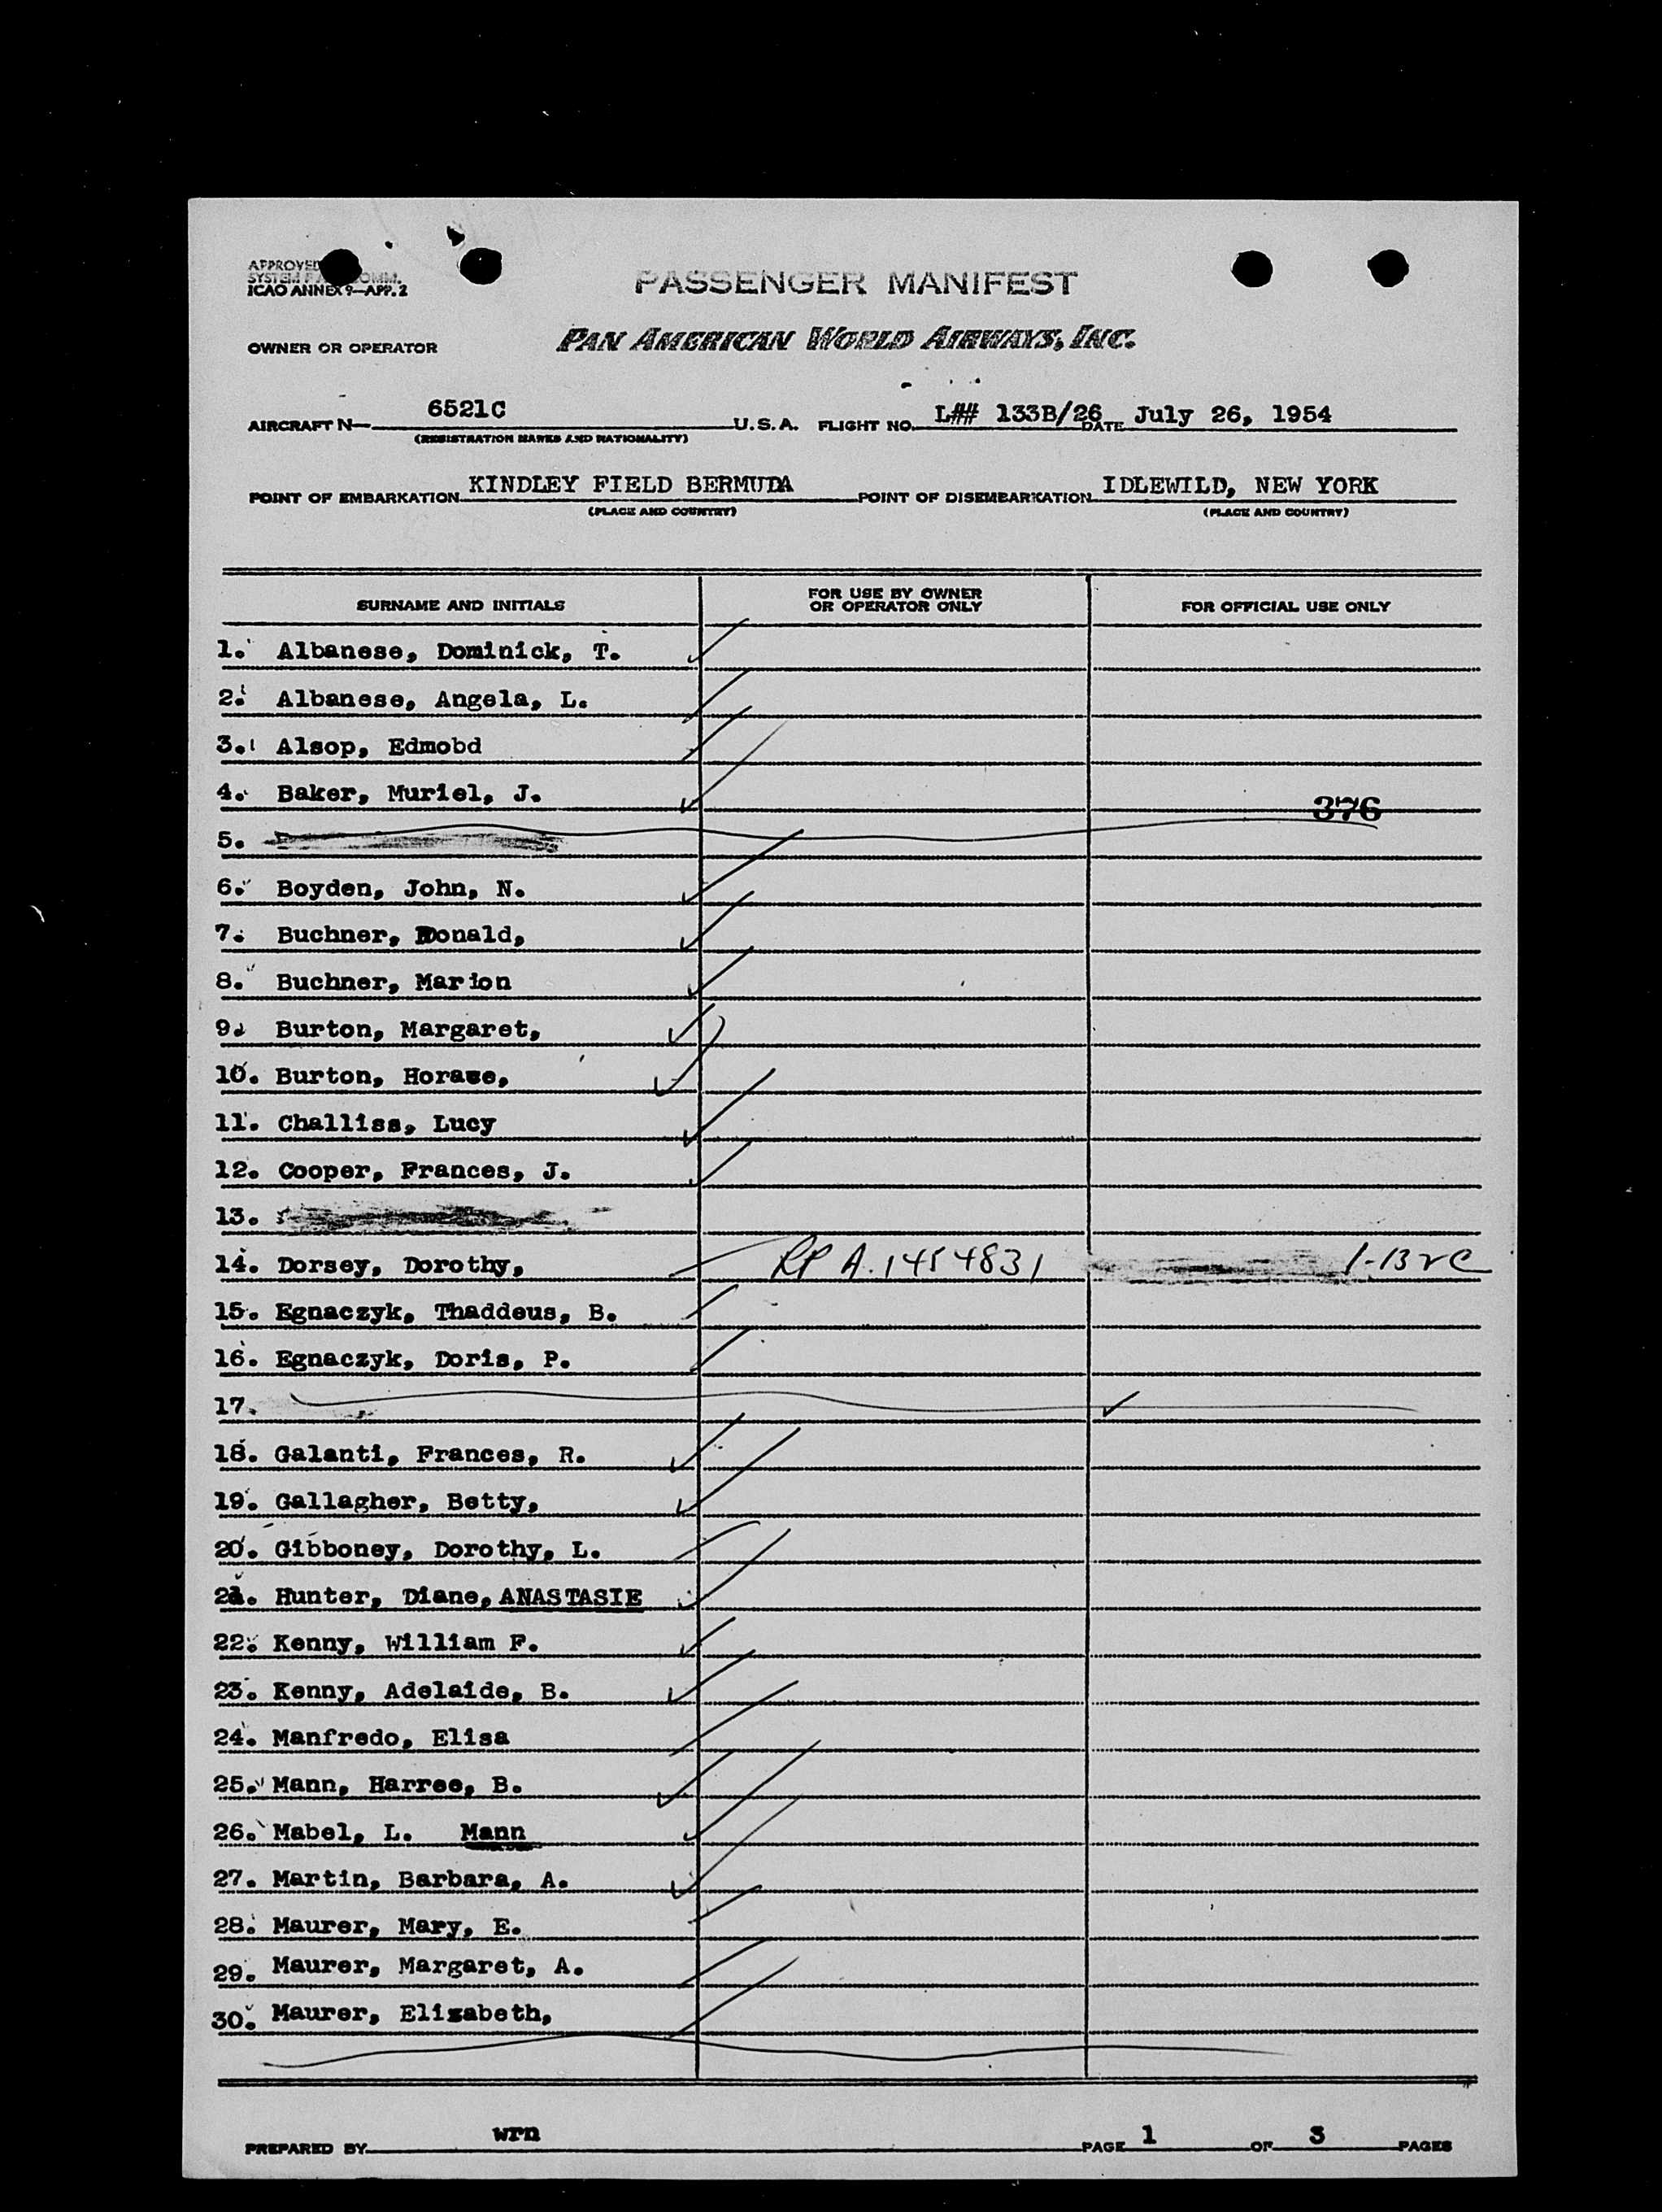 APPROVED
SYSTEM COMM.
ICAO ANNEX 9—APP. 2
PASSENGER MANIFEST
OWNER OR OPERATOR PAN AMERICAN WORLD AIRWAYS, INC.
AIRCRAFT N— 6521C U.S.A. FLIGHT NO. L## 133B/26 DATE July 26, 1954
(REGISTRATION MARKS AND NATIONALITY)
POINT OF EMBARKATION KINDLEY FIELD BERMUDA POINT OF DISEMBARKATION IDLEWILD, NEW YORK
(PLACE AND COUNTRY) (PLACE AND COUNTRY)
SURNAME AND INITIALS FOR USE BY OWNER OR OPERATOR ONLY FOR OFFICIAL USE ONLY
1. Albanese, Dominick, T.
2. Albanese, Angela, L.
3. Alsop, Edmobd
4. Baker, Muriel, J.
376
5.
6. Boyden, John, N.
7. Buchner, Donald,
8. Buchner, Marion
9. Burton, Margaret,
10. Burton, Horace,
11. Challiss, Lucy
12. Cooper, Frances, J.
13.
14. Dorsey, Dorothy, RP A.1454831 1-13
15. Egnaczyk, Thaddeus, B.
16. Egnaczyk, Doris, P.
17.
18. Galanti, Frances, R.
19. Gallagher, Betty,
20. Gibboney, Dorothy, L.
21. Hunter, Diane, ANASTASIE
22. Kenny, William F.
23. Kenny, Adelaide, B.
24. Manfredo, Elisa
25. Mann, Harree, B.
26. Mabel, L. Mann
27. Martin, Barbara, A.
28. Maurer, Mary, E.
29. Maurer, Margaret, A.
30. Maurer, Elizabeth,
PREPARED BY wrn PAGE 1 OF 3 PAGES